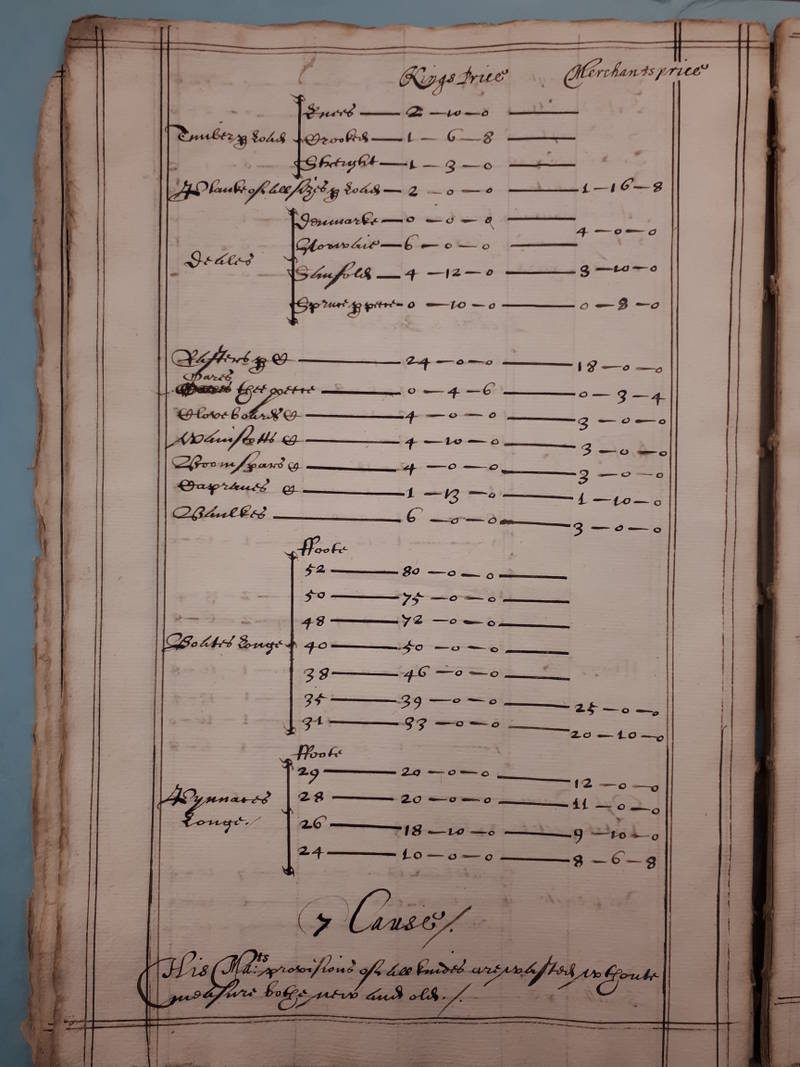 Kings Price Merchants price
Timber ꝑ Load
Knees 2 – 10 – 0
Crooked 1 – 6 – 8
Streight 1 – 3 – 0
Planke of all sizes ꝑ Load 2 – 0 – 0 1 – 16 – 8
Deales
Denmarke 0 – 0 – 0
Norwaie 6 – 0 – 0 4 – 0 – 0
4 – 12 – 0 3 – 10 – 0
Spruce ꝑ peece 0 – 10 – 0 0 – 8 – 0
Rafters ꝑ C 24 – 0 – 0 18 – 0 – 0
Oares
the peece 0 – 4 – 6 0 – 3 – 4
Clove boards C 4 – 0 – 0 3 – 0 – 0
Wainscotts C 4 – 10 – 0 3 – 0 – 0
Boomspars C 4 – 0 – 0 3 – 0 – 0
Capraves C 1 – 13 – 0 1 – 10 – 0
Baulkes 6 – 0 – 0 3 – 0 – 0
ffoote
52 80 – 0 – 0
50 75 – 0 – 0
48 72 – 0 – 0
Longe 40 50 – 0 – 0
38 46 – 0 – 0
35 39 – 0 – 0 25 – 0 – 0
31 33 – 0 – 0 20 – 10 – 0
ffoote
29 20 – 0 – 0 12 – 0 – 0
Pynnaces
28 20 – 0 – 0 11 – 0 – 0
Longe./
26 18 – 10 – 0 9 – 10 – 0
24 10 – 0 – 0 8 – 6 – 8
7 Cause /.
His Ma:ts provisions of all kindes are wasted wthoute
measure bothe new and old./.